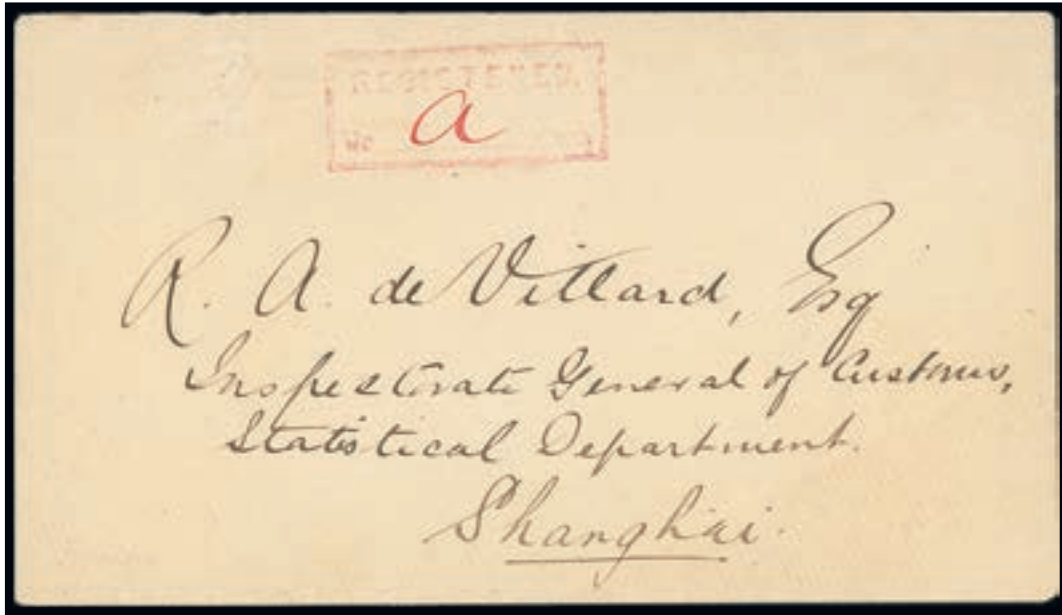 REGISTERED.
No a
R. A. de Villard, Esq
Inspectorate General of Customs,
Statistical Department.
Shanghai.